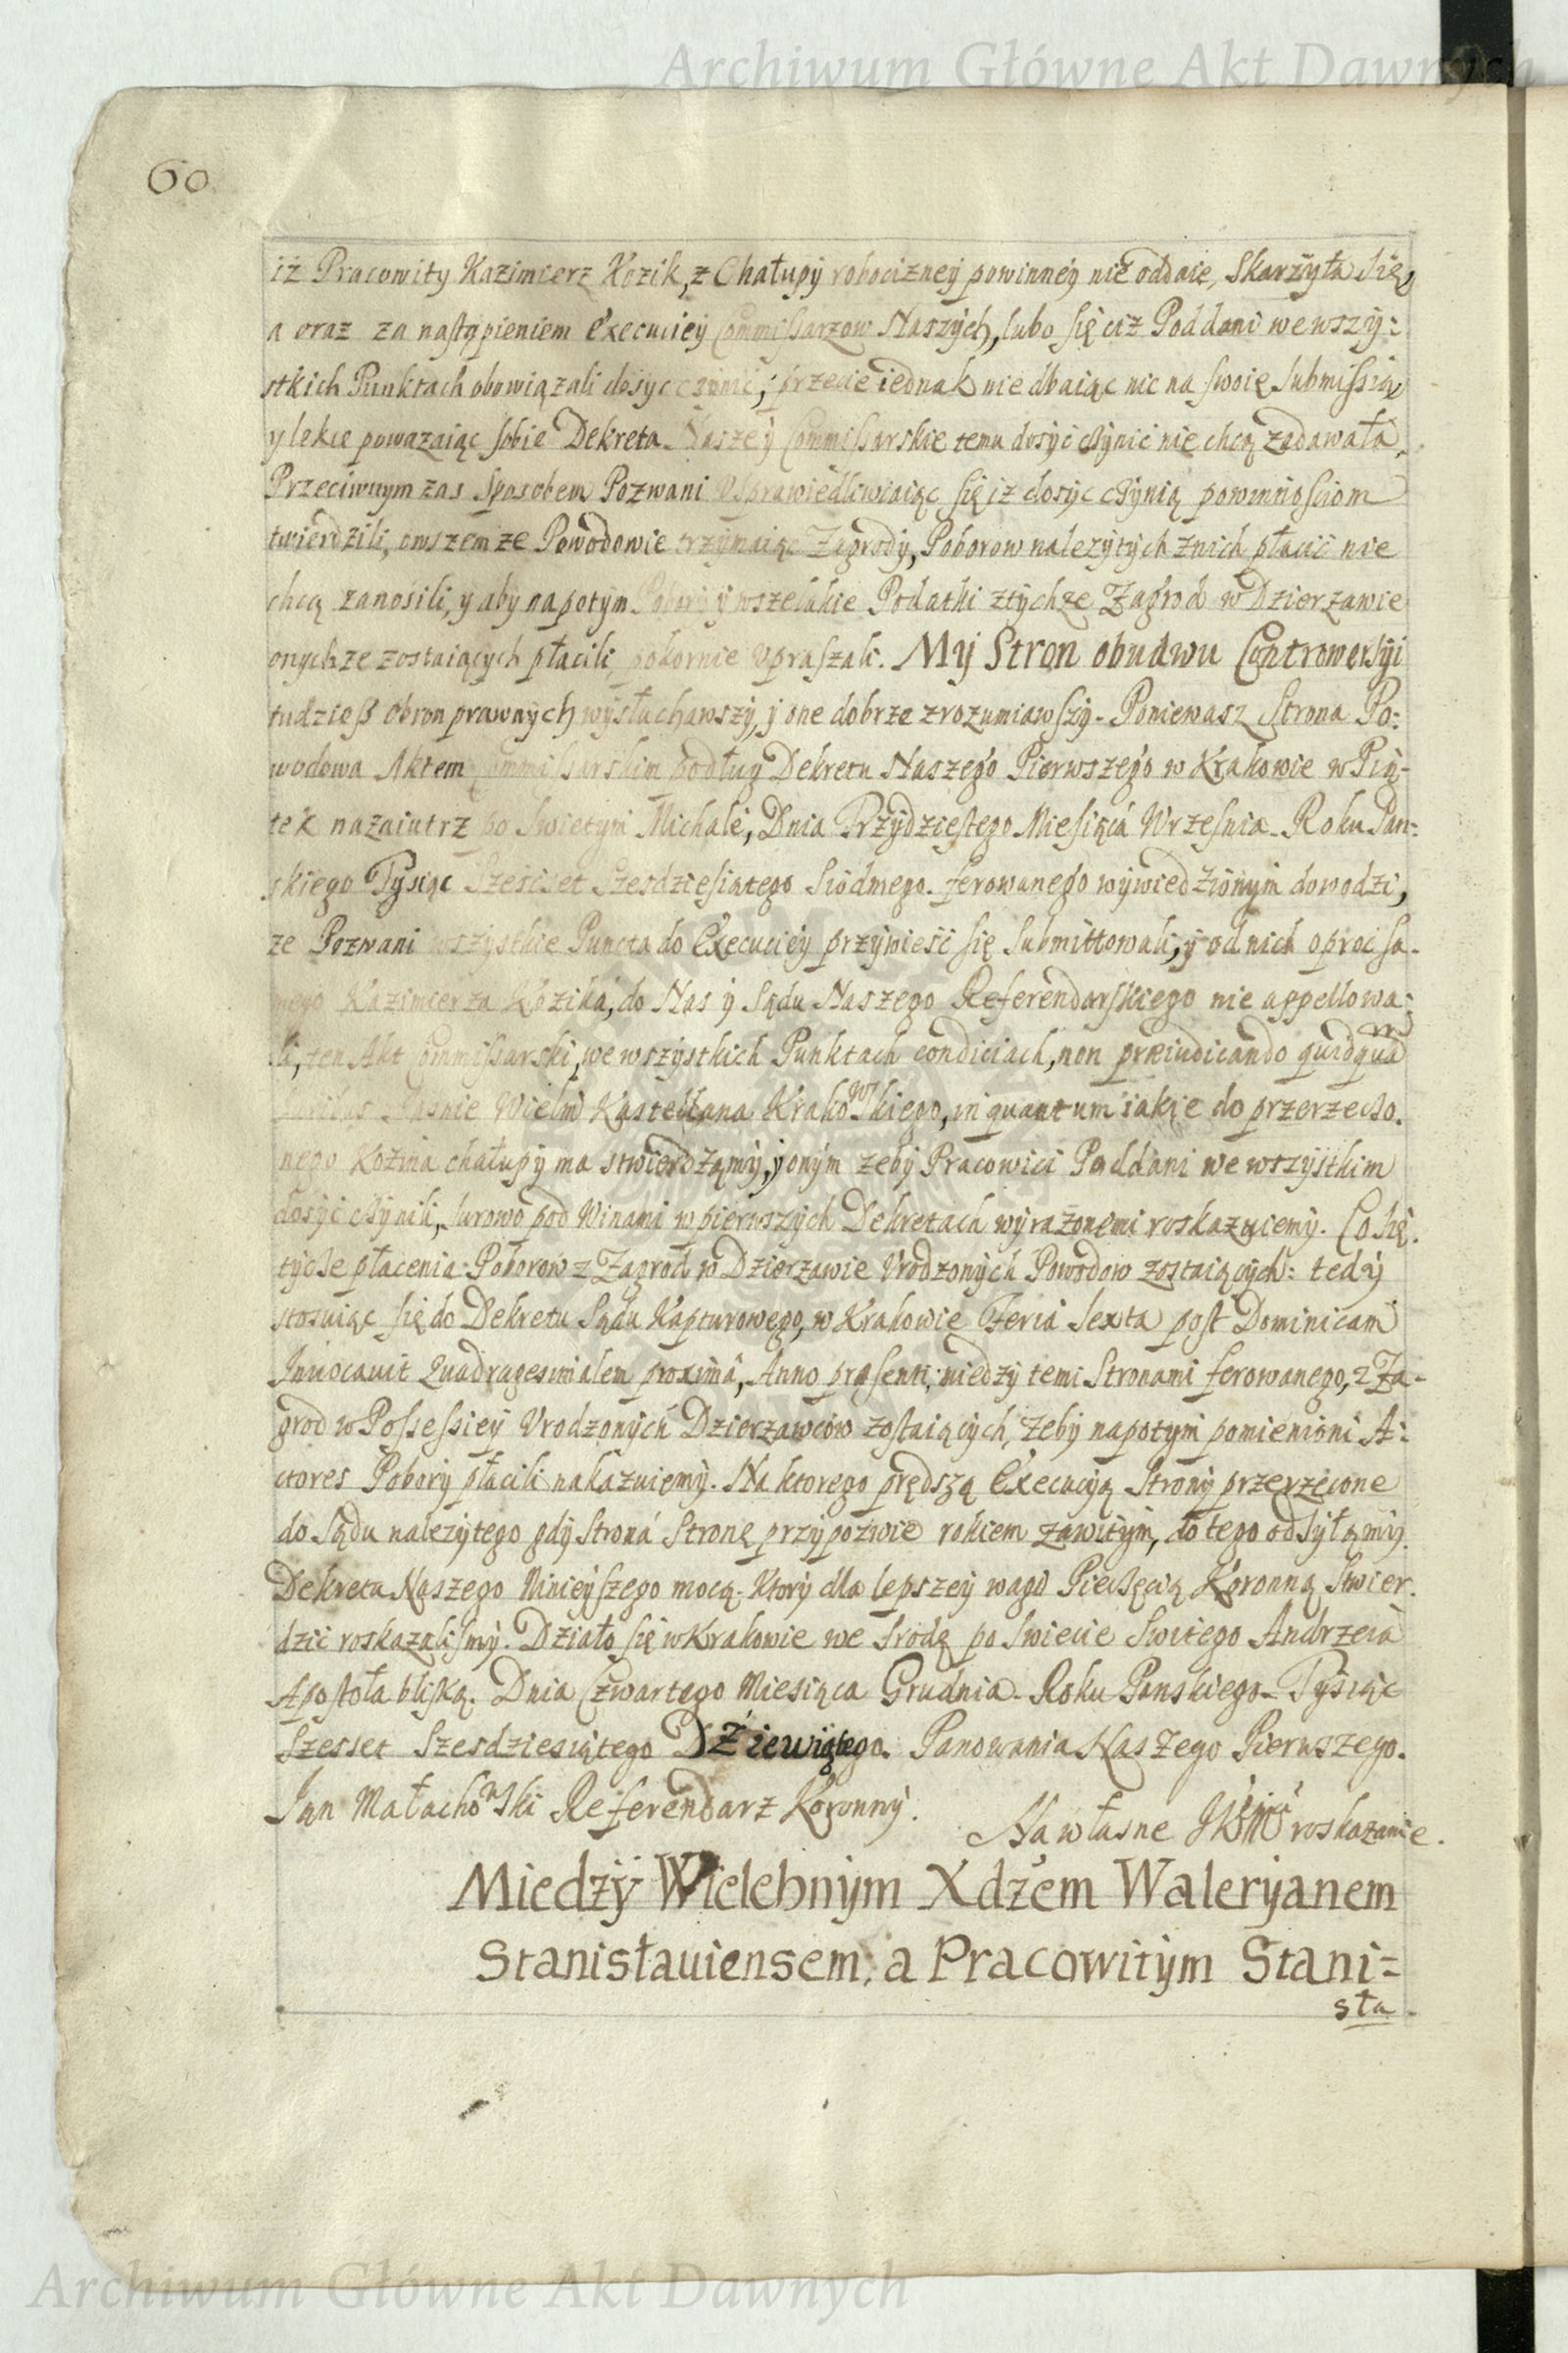 Archiwum Główne Akt Dawnych
60
iż Pracowity Kazimierz Kozik, z Chałupy robocizney powinney nie oddaie, Skarżyła się,
a oraz za nastąpieniem Execuciey Commissarzow Naszych, lubo się ciż Poddani we wszy:
stkich Punktach obowiązali dosyc czynić; przecie iednak nie dbaiąc nic na swoię Submissią
y lekce poważaiąc sobie Dekreta Naszey Commissarskie temu dosyć czynić nie chcą zadawała,
Przeciwnym zas Sposobem Pozwani Vsprawiedliwiaiąc się iz dosyc czynią powinnosciom
twierdzili, owszem ze Powodowie trzymaiąc Zagrody, Poborow nalezytych znich płacić nie
chcą zanosili, y aby napotym Pobory y wszelakie Podatki ztychze Zagrod w Dzierzawie
onychze zostaiących płacili, pokornie vpraszali. My Stron obudwu Controwersyi
tudzieß obron prawnych wysłuchawszy, y one dobrze zrozumiawszy. Poniewasz Strona Po:
wodowa Aktem Commissarskim podług Dekretu Naszego Pierwszego w Krakowie w Pią-
tek nazaiutrz po Swietym Michale, Dnia Trzydziestego Miesiąca Wrzesnia Roku Pan:
skiego Tysiąc Szescset Szesdziesiatego Siodmego. ferowanego wywiedzionym dowodzi,
ze Pozwani wszystkie Puncta do Execuciey przywieść się Submittowali, y od nich oprocz sa-
mego Kazimierza Kozika, do Nas y Sądu Naszego Referendarskiego nie appellowa:
li, ten Akt Commissarski, we wszystkich Punktach condiciach, non præiudicando quidquam
Iuribus Jasnie Wielm Kasztellana Krakowskiego, in quantum iakie do przerzeczo.
nego Kozika chałupy ma stwierdzamy, y onym zeby Pracowici Poddani we wszystkim
dosyć czynili, surowo pod Winami w pierwszych Dekretach wyrazonemi roskazuiemy. Co się
tycze płacenia Poborow z Zagrod w Dzierzawie Vrodzonych Powodow zostaiących: tedy
stosuiąc się do Dekretu Sądu Kapturowego, w Krakowie Feria Sexta post Dominicam
Inuocauit Quadragesimalem proximâ, Anno præsenti, miedzy temi Stronami ferowanego, z Za-
grod w Possessiey Vrodzonych Dzierzawcow zostaiących, zeby napotym pomienioni A:
ctores Pobory płacili nakazuiemy. Na ktorego prędszą Execucyą Strony przerzeczone
do Sądu nalezytego gdy Strona Stronę przypozwie rokiem zawitym, do tego odsyłamy.
Dekretu Naszego Ninieyszego mocą. Ktory dla lepszey wagi Pieczęcią Koronną Stwier.
dzić roskazalismy. Działo się w Krakowie we Srodę po Swiecie Swietego Andrzeia
Apostoła bliską. Dnia Czwartego Miesiąca Grudnia Roku Panskiego Tysiąc
Szesset Szesdziesiątego Dziewiątego. Panowania Naszego Pierwszego.
Jan Małachowski Referendarz Koronny.
Na własne roskazanie.
Miedzy Wielebnym Xdzem Waleryanem
Stanisłauiensem, a Pracowitym Stani=
sła
Archiwum Główne Akt Dawnych